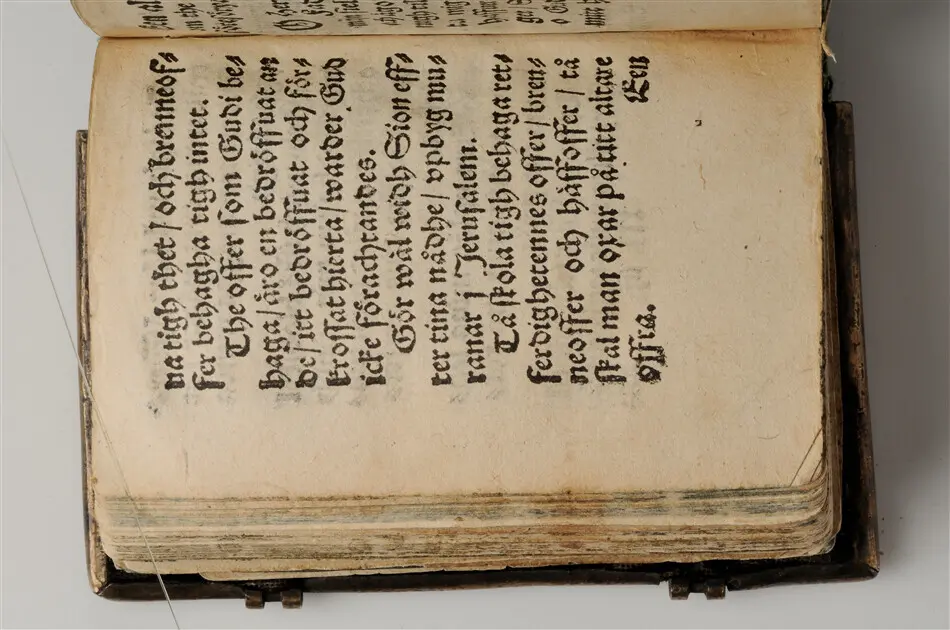 na tigh thet / och brenneof⸗
fer behagha tigh intet.
The offer som Gudi be⸗
haga / äro en bedröffuat an
de / itt bedröffuat och för⸗
krossat hierta / warder Gud
icke förachtandes.
Gör wäl widh Sion eff⸗
ter tina nådhe / vpbyg mu⸗
ranar j Jerusalem.
Tå skola tigh behaga ret⸗
ferdighetennes offer / bren⸗
neoffer och häffoffer / tå
skal man oxar på titt altare
offra.
Een